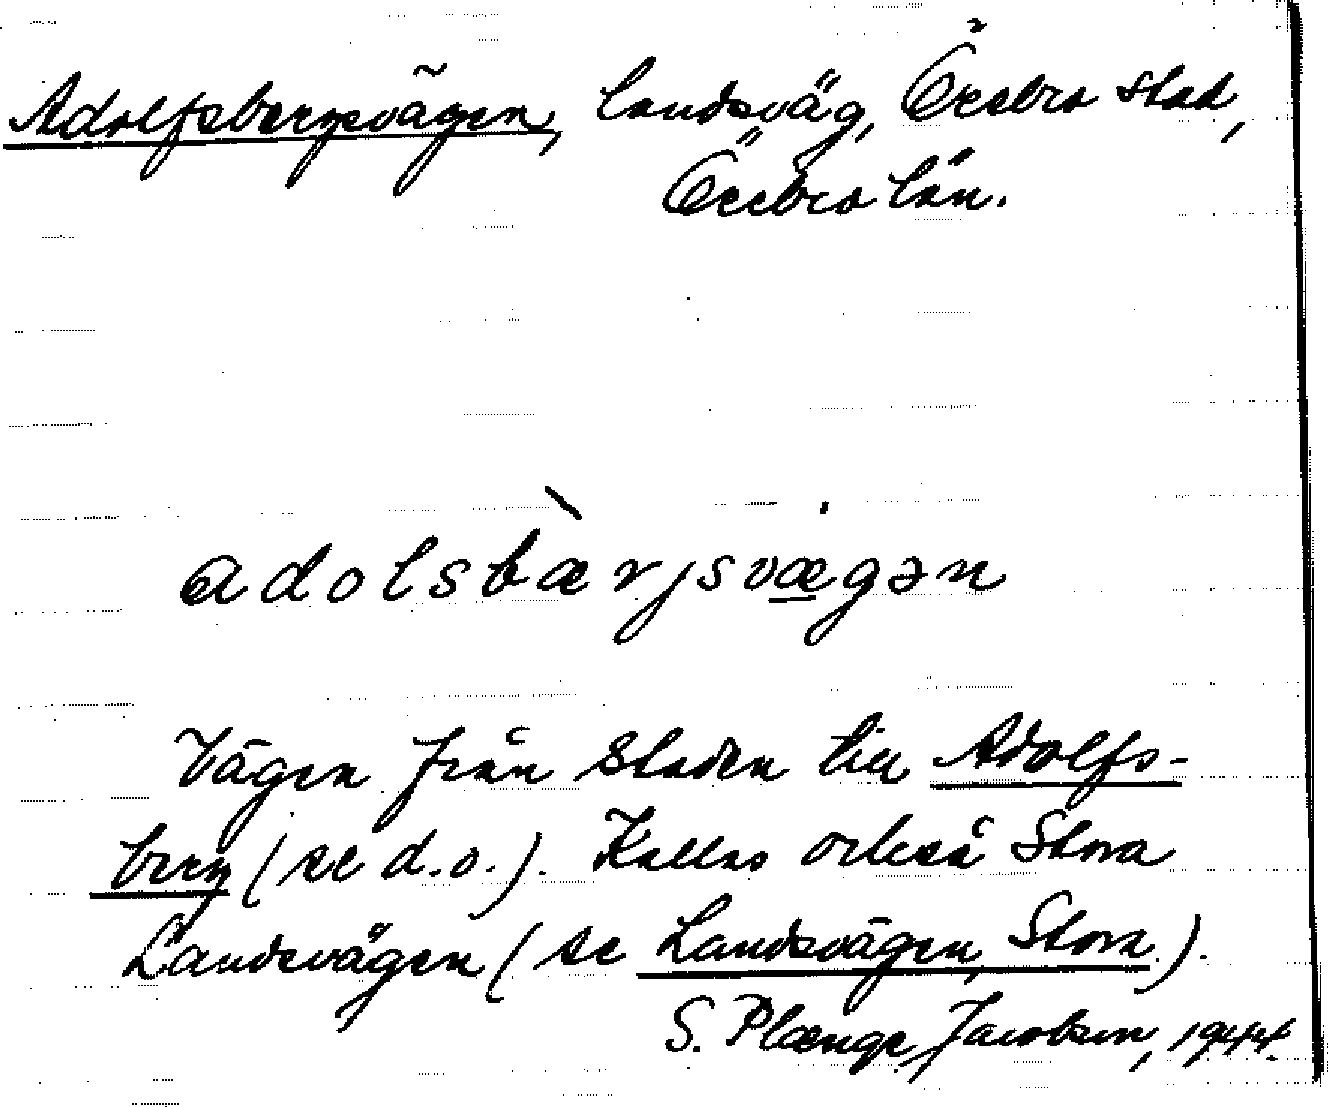 Adolfsbergsvägen, landsväg, Örebro stad,
Örebro län.
adolsbæ̀rjsvæ̲gən
Vägen från staden till Adolfs-
berg (se d.o.). Kallas också Stora
Landsvägen (se Landsvägen, Stora).
S. Plænge Jacobson, 1944.